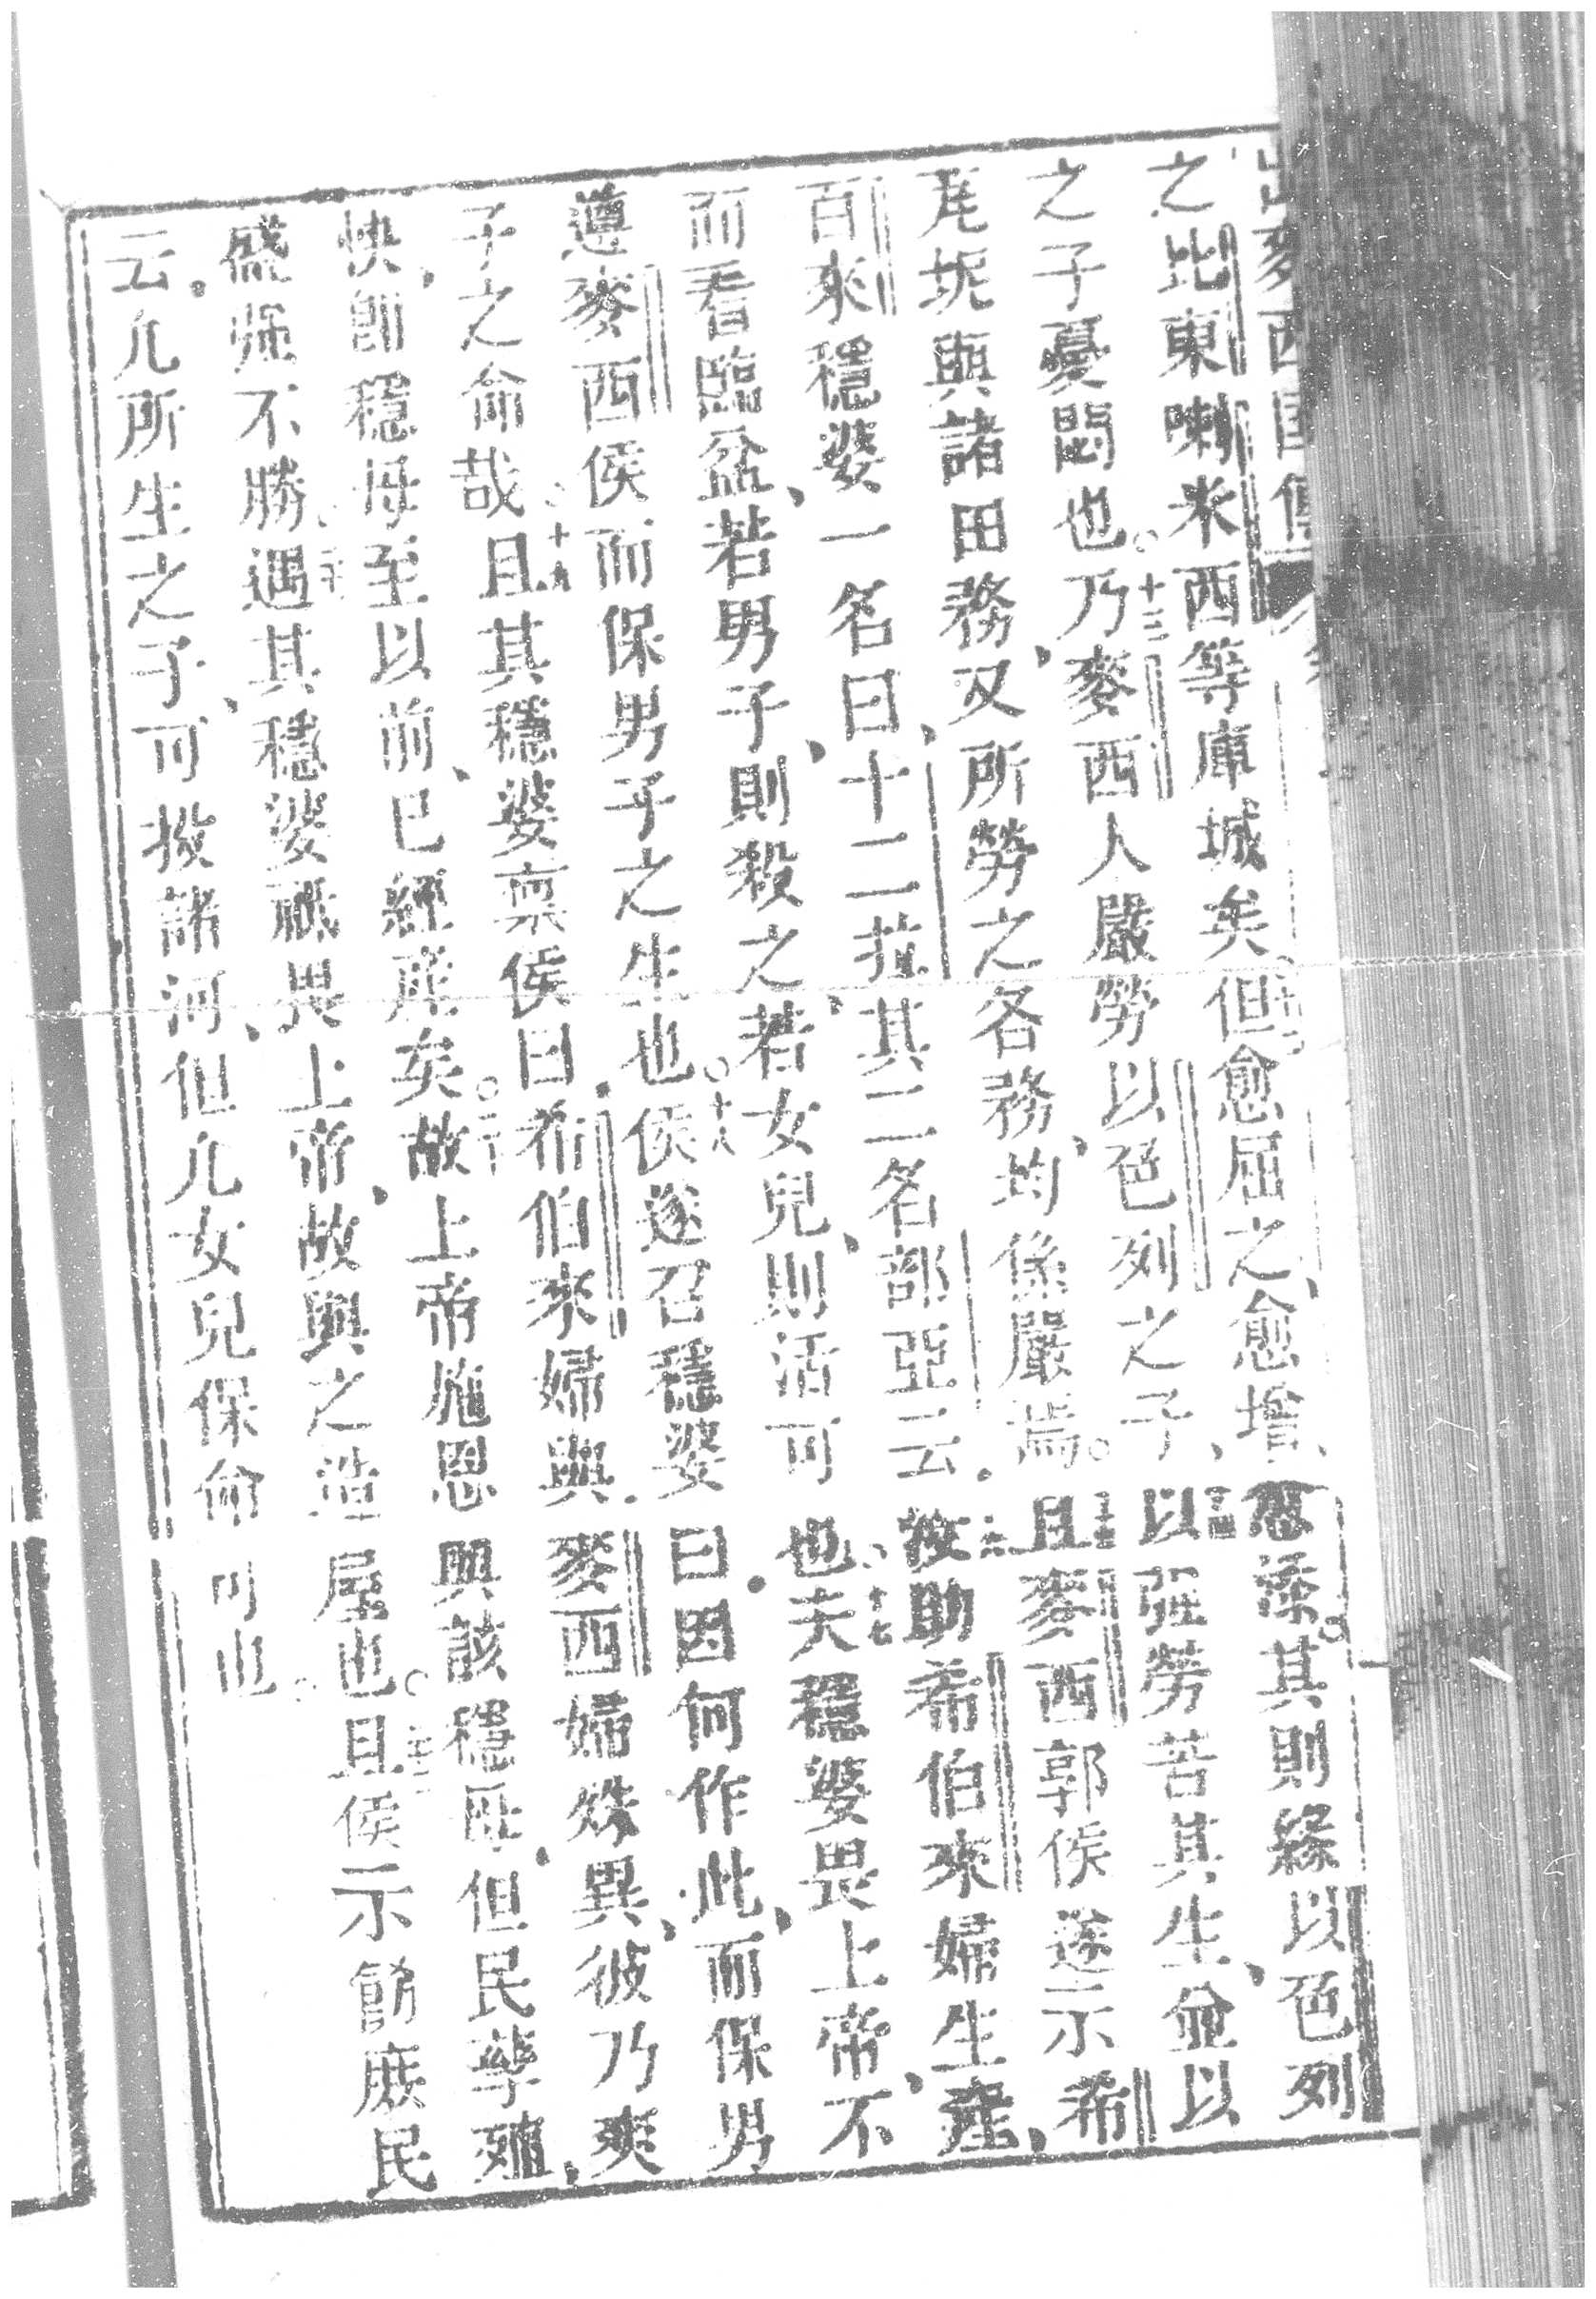 出麥西國傳
之比東喇米西等庫城矣但愈屈之、愈增、愈添。其則緣以色列
之子憂悶也。十三乃麥西人嚴勞以色列之子、十四以强勞苦其生、並以
坭與諸田務、又所勞之各務、均係嚴焉。十五且麥西郭侯遂示希
百來穩婆一名曰十二菈、其二名部亞云。十六助希伯來婦生產、
而看臨盆、若男子、則殺之若女兒、則活可也、十七夫穩婆畏上帝、不
遵麥西侯而保男子之生也。十八侯遂召穩婆曰。因何作此、而保男
子之命哉。十九且其穩婆稟侯曰。希伯來婦與麥西婦殊異、彼乃爽
快、卽穩母至以前、已經產矣。二十故上帝施恩與該穩母、但民孳殖、
盛强不勝。二十一遇其穩婆祗畏上帝、故與之造屋也。二十二且侯示飭庶民
云。凡所生之子、可投諸河、但凡女兒保命可也。